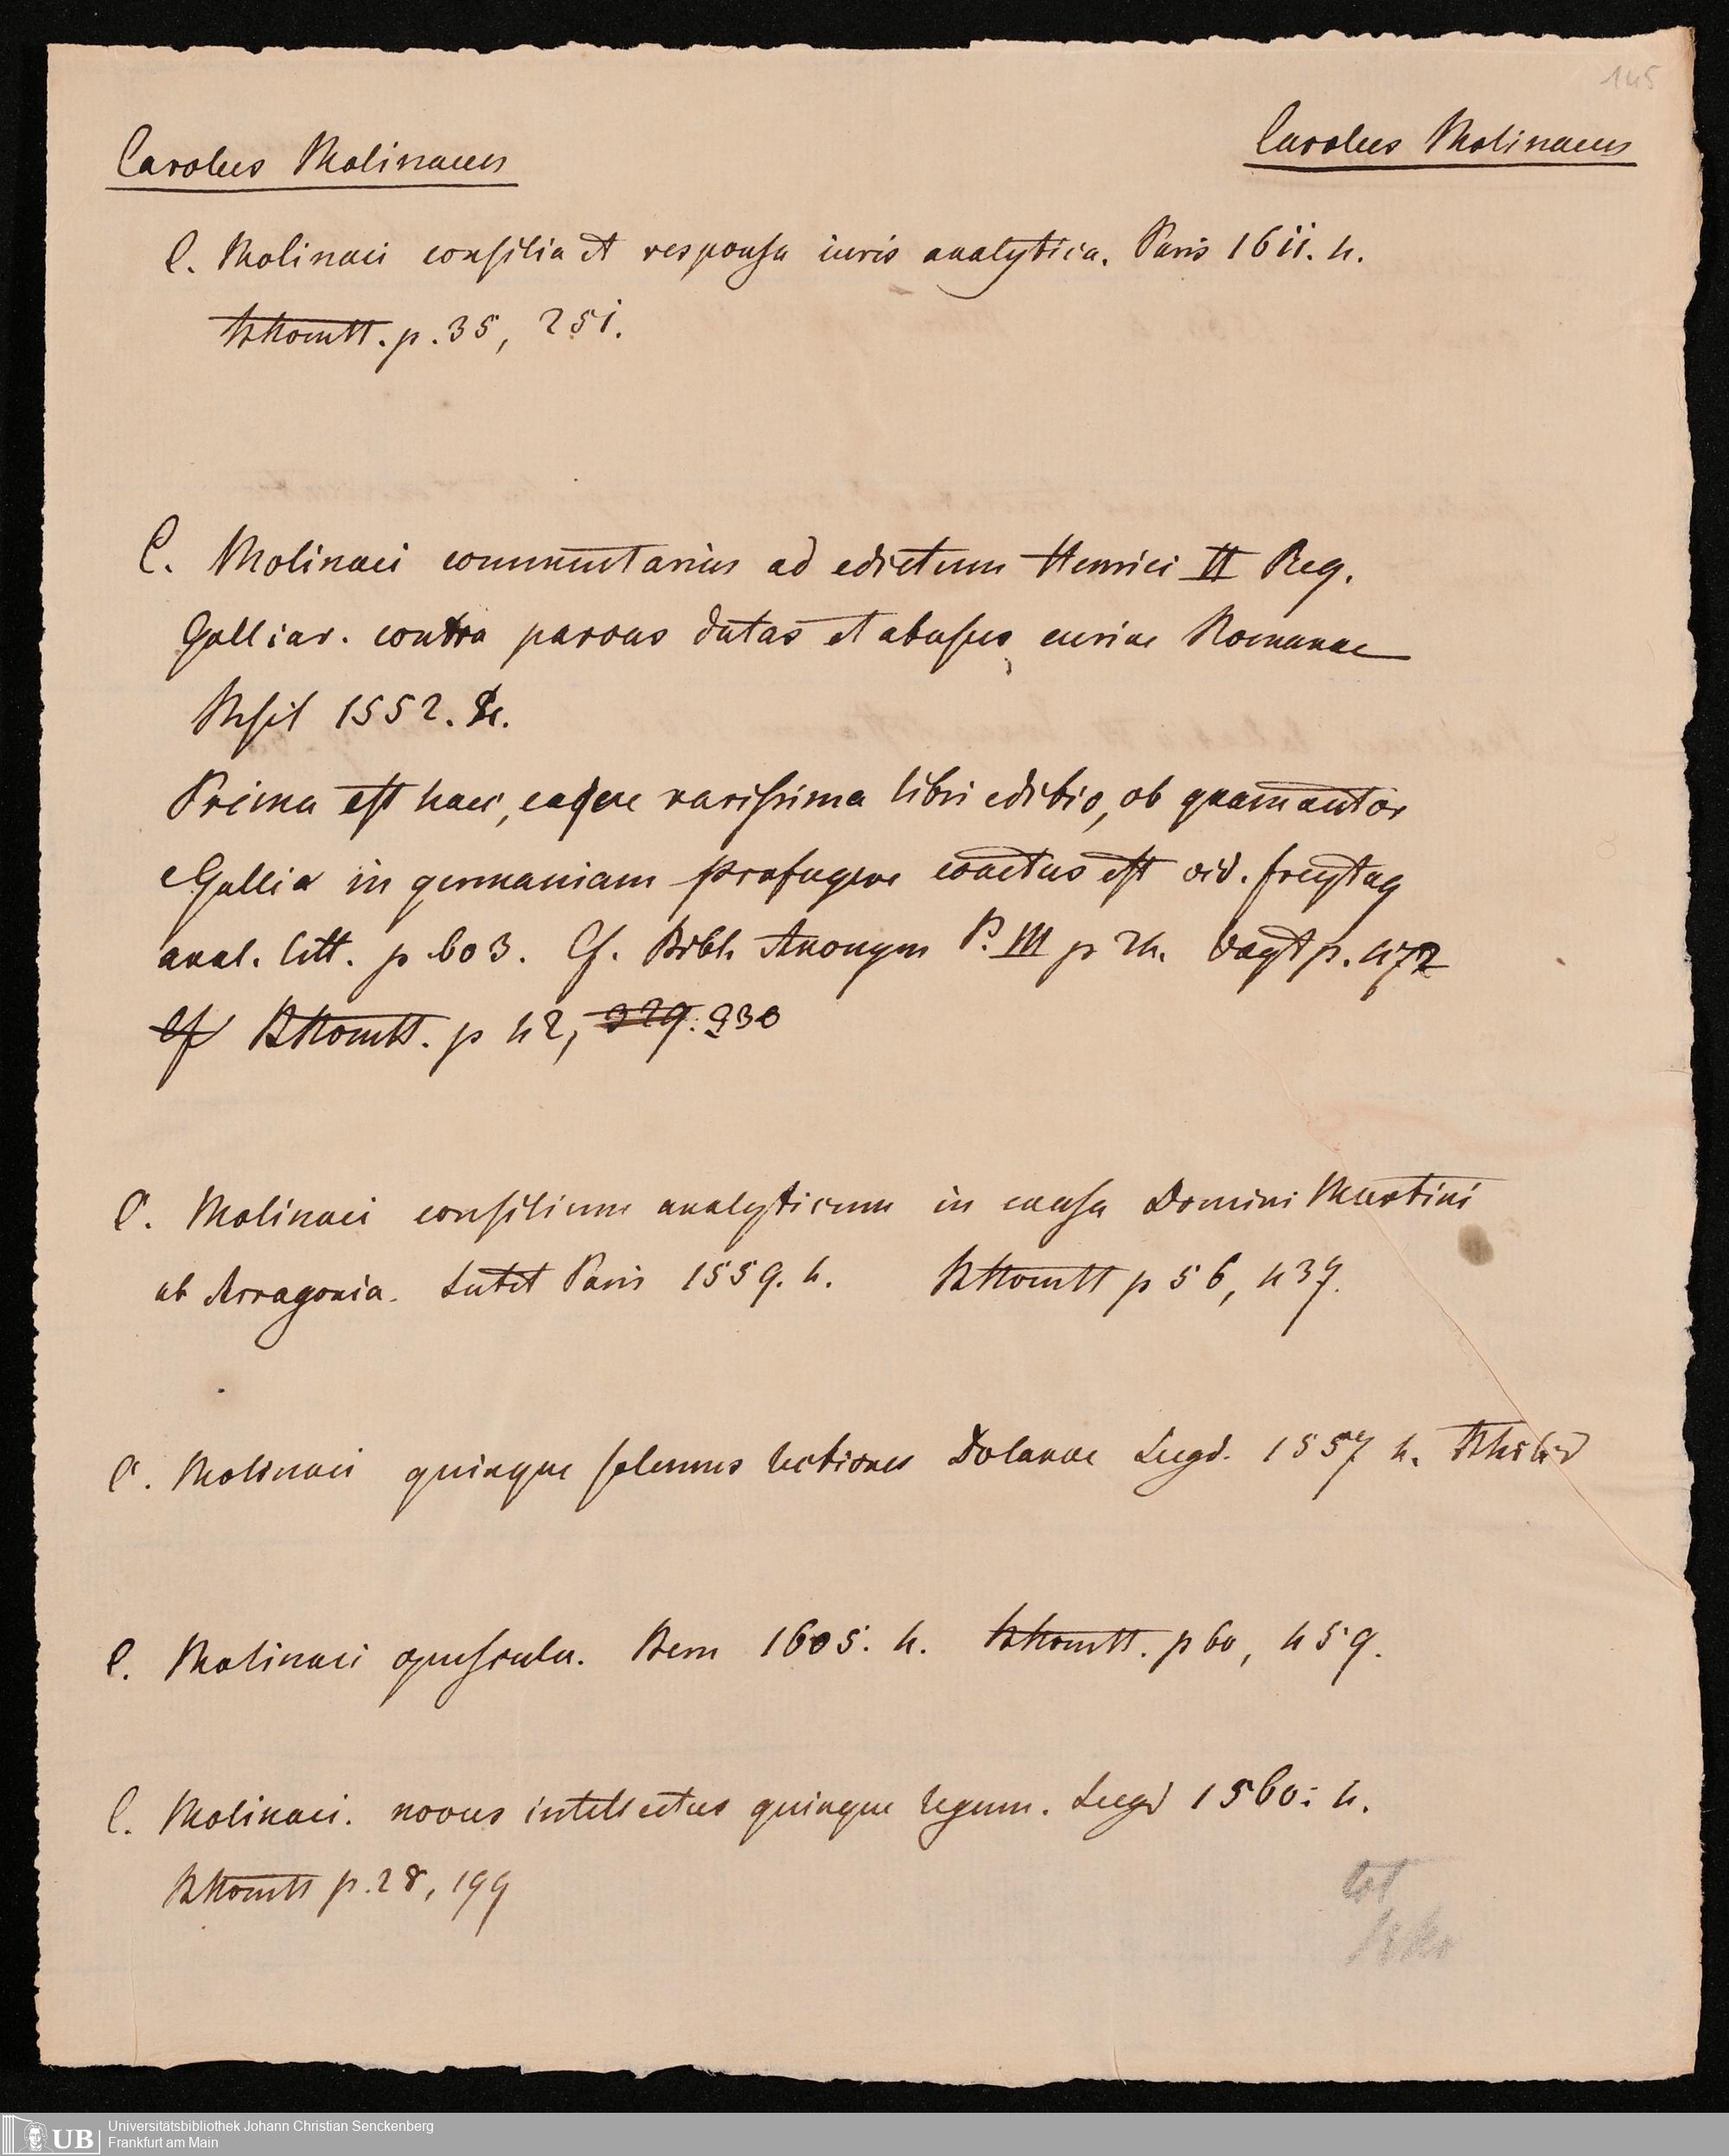 145
Carolus Molinaeus
Carolus Molinaeus
C. Molinaei consilia et responsa iuris analytica. Paris 1611. 4.
p. 35, 251.
C. Molinaei commentarius ad edictum Henrici II Reg.
Galliar. contra parvas datas et abusus curiae Romanae
1552. 8.
Prima est haec, eaque rarissima libri editio, ob quam autor
Gallia in germaniam profugere coactus est vid. freytag
anal. litt. p. 603. Cf. Bibl. Anonym P. III p 24. Vogt p. 472
cf p 42, 329. 330
C. Molinaei consilium analyticum in causa Domini Martini
ab Arragonia. Lutet Paris 1559. 4. p 56, 437.
C. Molinaei quinque solemnes lectiones Dolanae Lugd. 1557 4.
C. Molinaei opuscula. Bern 1605. 4. p 60, 459.
C. Molinaei. novus intellectus quinque legum. Lugd 1560. 4.
p. 28, 199
UB Universitätsbibliothek Johann Christian Senckenberg
Frankfurt am Main